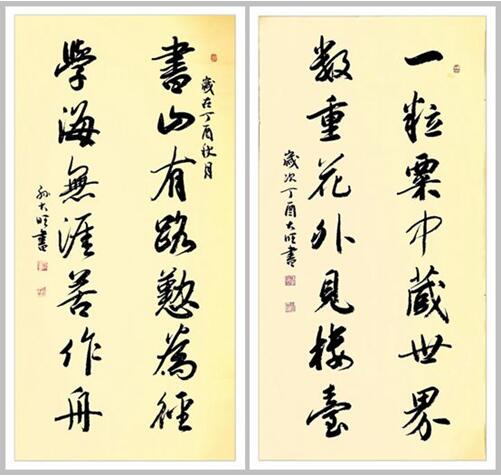 書山有路懃為徑
歲在丁酉秋月
學海無涯苦作舟
孙大旺書
一粒粟中藏世界
数重花外見楼臺
歲次丁酉大旺書